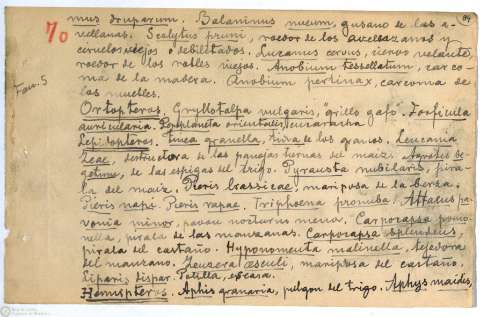 mus druparum. Balaninus nucum, gusano de las a-
vellanas. Scolytus pruni, roedor de los avellanos y
ciruelos viejos o debilitados. Lucanus cervus, ciervo volante,
roedor de los robles viejos. Anobium tessellatum, carco-
ma de la madera. Anobium pertinax, carcoma de
los muebles.
Ortopteros. Gryllotalpa vulgaris, "grillo gafo". Forficula
auricularia. Periplaneta orientalis, cucaracha
Lepidopteros. Tinea granella, tinea de los granos. Leucania
Zeae, destructora de las panojas tiernas del maiz. Agrotis
de las espigas del trigo. Pyrausta nubilaris, pira-
la del maiz. Pieris brassicae, mariposa de la berza.
Pieris napi. Pieris rapae. Triphoena pronuba. Attacus pa-
vonia minor, pavon nocturno menor. Carpocapsa pomo-
nella, pirala de las manzanas. Carpocapsa splendens
pirala del castaño. Hyponomenta malinella, tejedora
del manzano. Zeuzera esculi, mariposa del castaño.
Liparis dispar. Polilla, escasa.
Hemipteros. Aphis granaria, pulgon del trigo. Aphys maidis,
70
Fau. 5